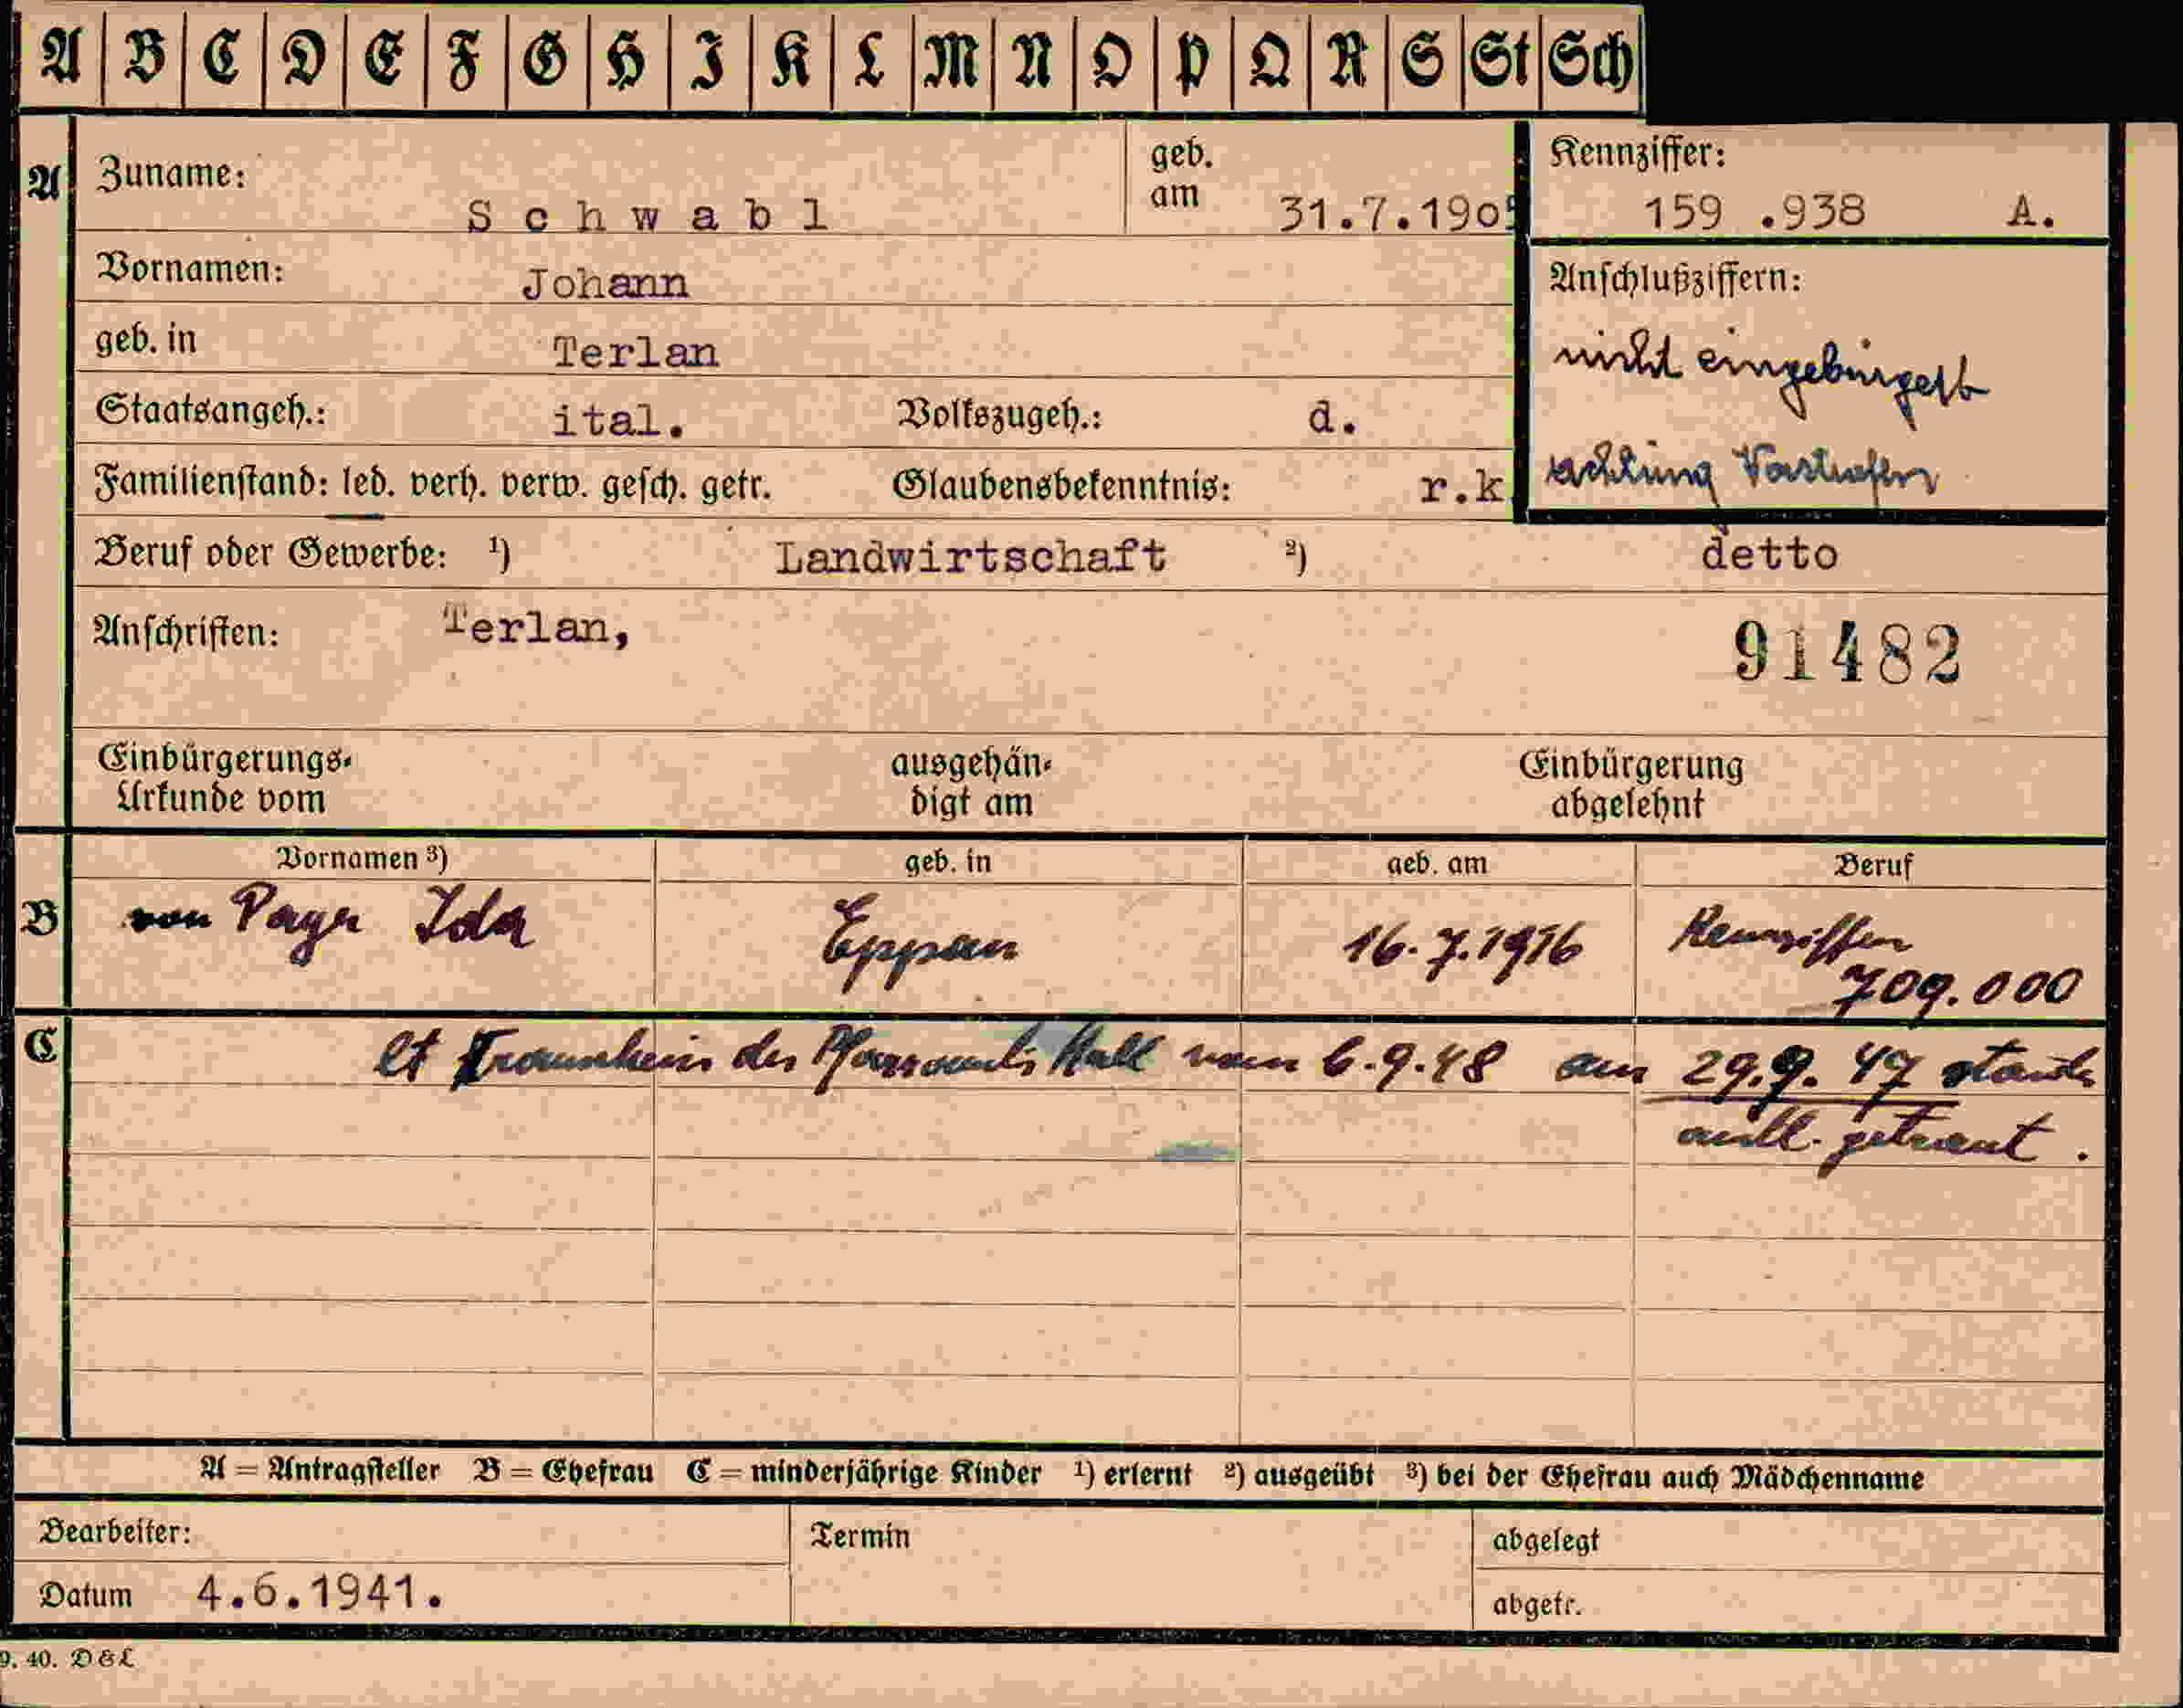 A B C D E F G H I K L M N O P Q R S St Sch
A Zuname: Schwabl geb. am 31.7.190 Kennziffer: 159 .938 A.
Vornamen: Johann Anschlußziffern:
geb. in Terlan nicht eingebürgert
Staatsangeh.: ital. Volkszugeh.: d.
Familienstand: led. verh. verw. gesch. getr. Glaubensbekenntnis: r.k
Beruf oder Gewerbe: ¹) Landwirtschaft ²) detto
Anschriften: Terlan, 91482
Einbürgerungs-Urkunde vom ausgehändigt am Einbürgerung abgelehnt
Vornamen ³) geb. in geb. am Beruf
B von Payr Ida Eppan 16.7.1916 Kennziffer
709.000
C lt Trauschein des Pfarramts Hall vom 6.9.48 am 29.9.47
getraut.
A = Antragsteller B = Ehefrau C = minderjährige Kinder ¹) erlernt ²) ausgeübt ³) bei der Ehefrau auch Mädchenname
Bearbeiter: Termin abgelegt
Datum 4.6.1941. abgetr.
9. 40. D&L